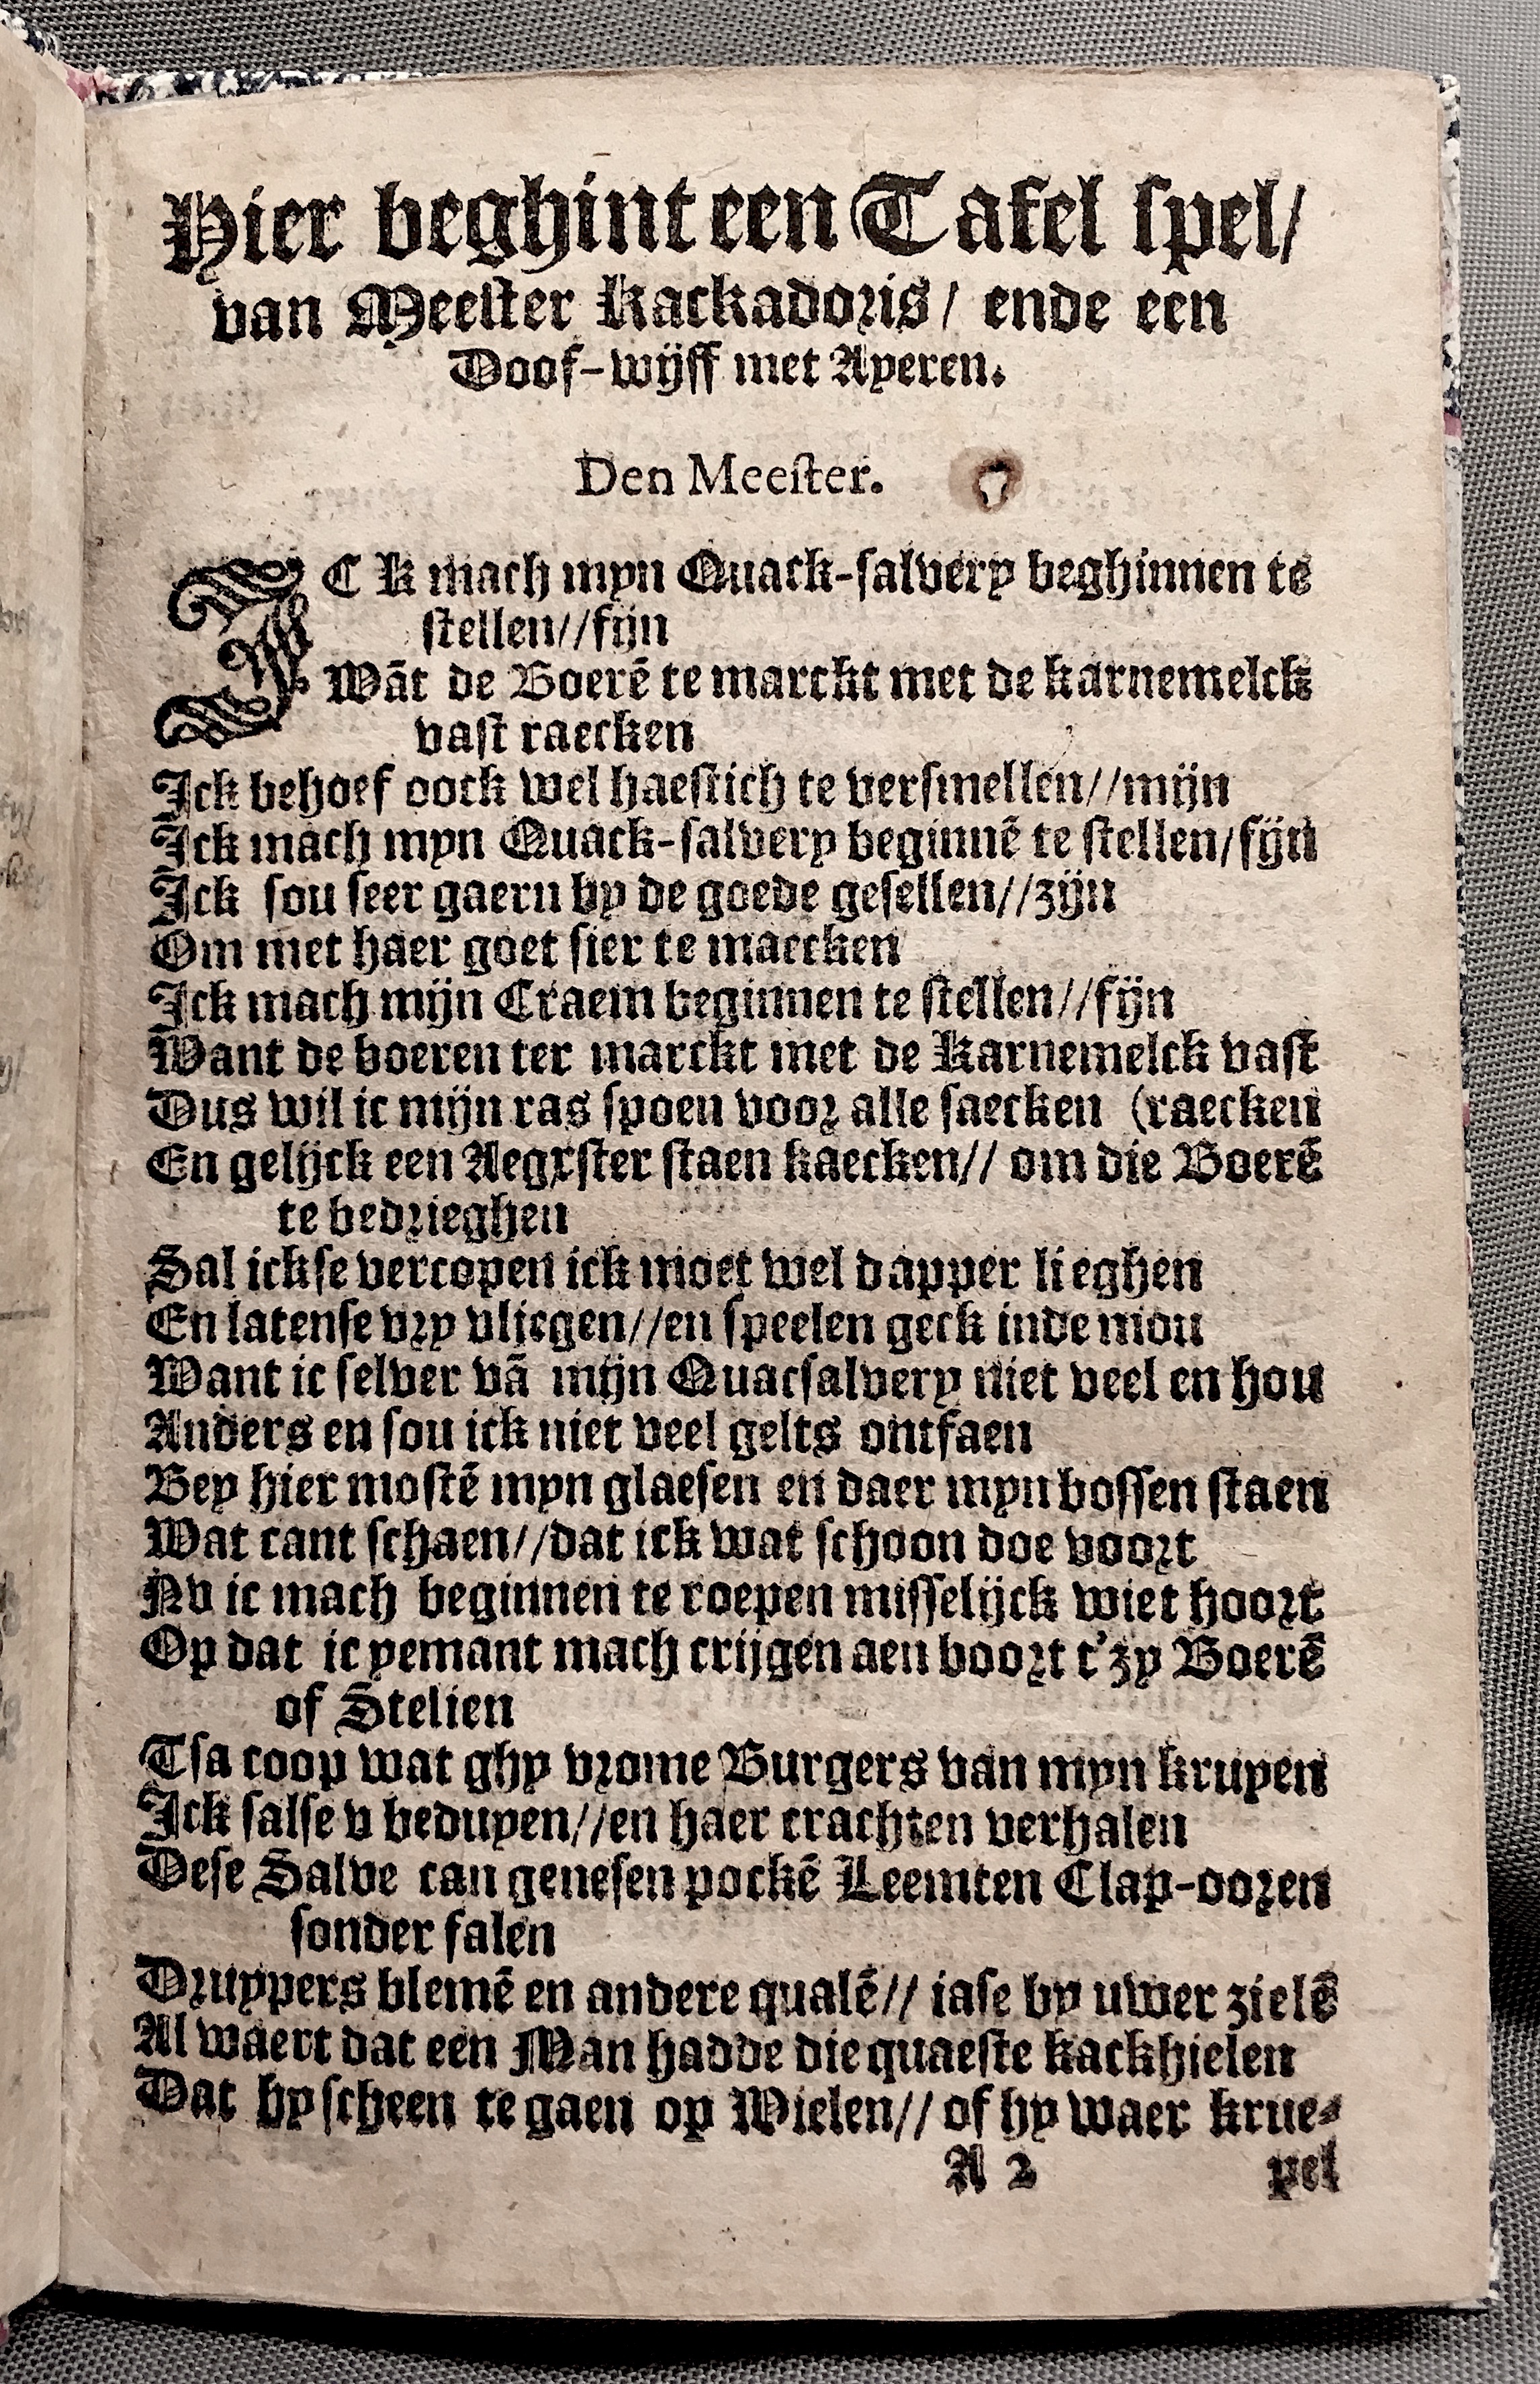 Hier beghint een Tafel spel/
van Meester Kackadoris/ ende een
Doof-wijff met Ayeren.
Den Meester.
ICK mach myn Quack-salvery beghinnen te
stellen//fijn
Wāt de Boerē te marckt met de karnemelck
vast raecken
Ick behoef oock wel haestich te versnellen//mijn
Ick mach myn Quack-salvery beginnē te stellen/fijn
Ick sou seer gaern by de goede gesellen//zijn
Om met haer goet sier te maecken
Ick mach mijn Craem beginnen te stellen//fijn
Want de boeren ter marckt met de Karnemelck vast
Dus wil ic mijn ras spoen voor alle saecken (raecken
En gelijck een Aegxster staen kaecken// om die Boerē
te bedrieghen
Sal ickse vercopen ick moet wel dapper lieghen
En latense vry vliegen//en speelen geck inde mou
Want ic selver vā mijn Quacsalvery niet veel en hou
Anders en sou ick niet veel gelts ontfaen
Bey hier mostē myn glaesen en daer myn bossen staen
Wat cant schaen//dat ick wat schoon doe voort
Nv ic mach beginnen te roepen misselijck wiet hoort
Op dat ic yemant mach crijgen aen boort t'zy Boerē
of Stelien
Tsa coop wat ghy vrome Burgers van myn kruyen
Ick salse v beduyen//en haer crachten verhalen
Dese Salve can genesen pockē Leemten Clap-ooren
sonder falen
Druypers blemē en andere qualē// iase by uwer zielē
Al waert dat een Man hadde die quaeste kackhielen
Dat hy scheen te gaen op Wielen// of hy waer krue-
A 2 pel